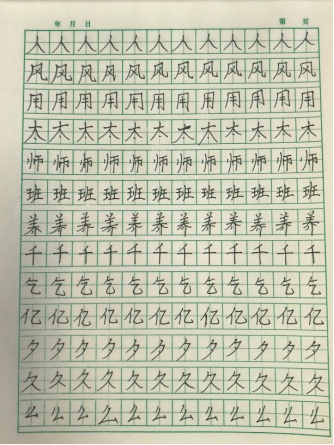 年 月 日 第 页
人 人 人 人 人 人 人 人 人 人 人 人
风 风 风 风 风 风 风 风 风 风 风 风
用 用 用 用 用 用 用 用 用 用 用 用
太 太 太 太 太 太 太 太 太 太 太 太
师 师 师 师 师 师 师 师 师 师 师 师
班 班 班 班 班 班 班 班 班 班 班 班
养 养 养 养 养 养 养 养 养 养 养 养
千 千 千 千 千 千 千 千 千 千 千 千
乞 乞 乞 乞 乞 乞 乞 乞 乞 乞 乞 乞
亿 亿 亿 亿 亿 亿 亿 亿 亿 亿 亿 亿
夕 夕 夕 夕 夕 夕 夕 夕 夕 夕 夕 夕
久 久 久 久 久 久 久 久 久 久 久 久
么 么 么 么 么 么 么 么 么 么 么 么